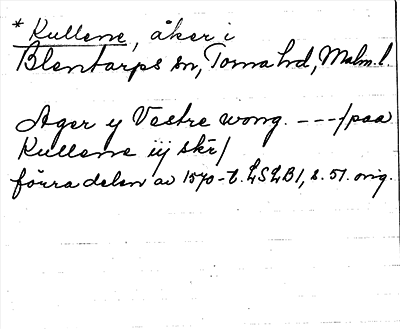 * Kullerne, åker i
Blentarps sn, Torna hd, Malm. l.
Ager y Vestre wong. ---/paa
Kullerne iij skr/
förra delen av 1570-t. LSLB1, s. 51. orig.